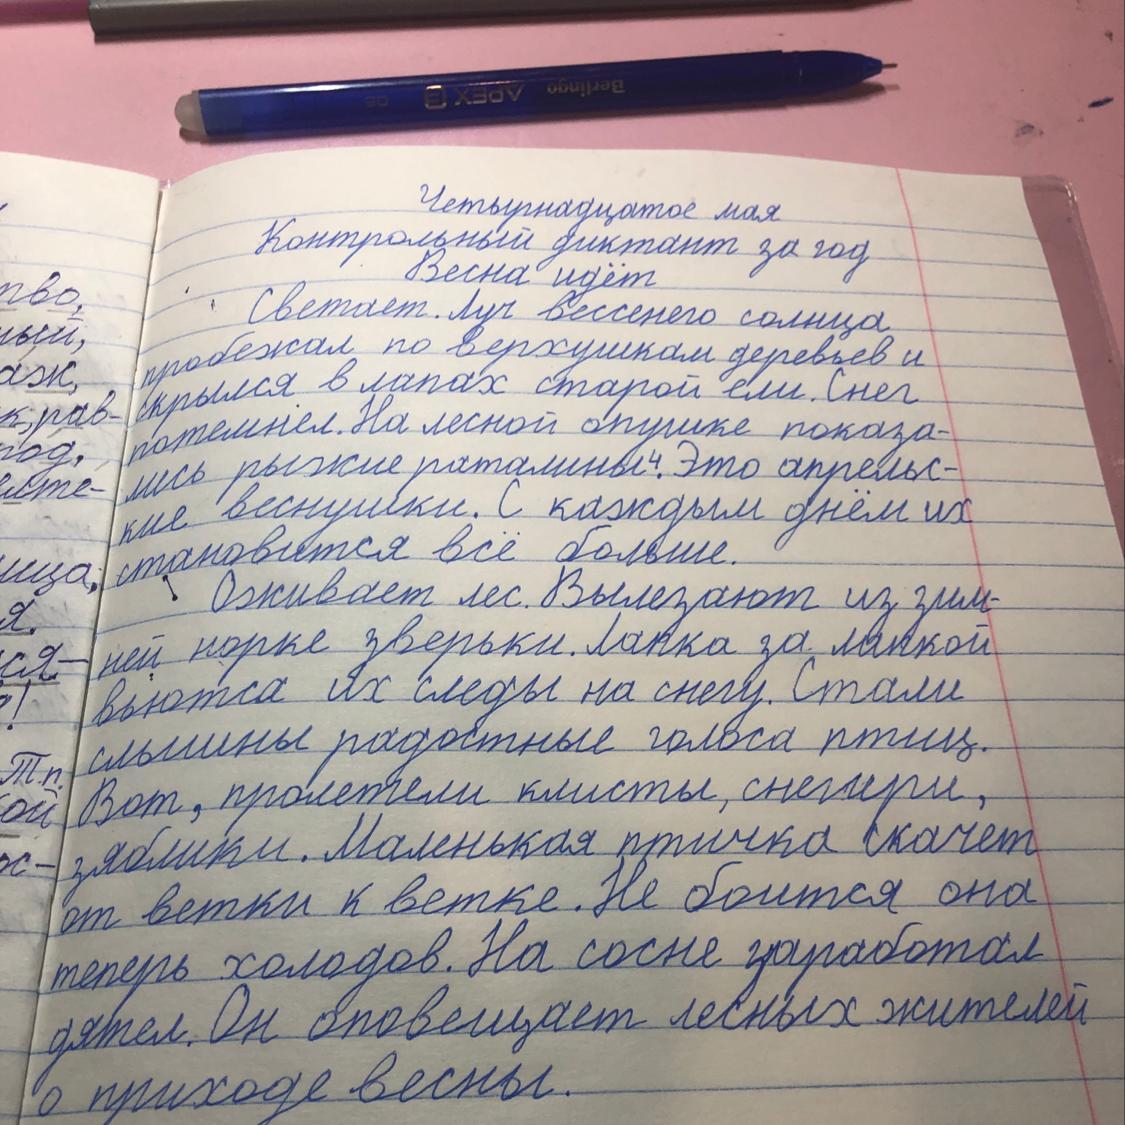 Berlingo APEX E
Четырнадцатое мая
Контрольный диктант за год
Весна идёт
Светает. Луч вессенего солнца
пробежал по верхушкам деревьев и
скрылся в лапах старой ели. Снег
потемнел. На лесной опушке показа-
лись рыжие раталины4. Это апрельс-
кие веснушки. С каждым днём их
становится всё больше.
Оживает лес. Вылезают из зим-
ней норке зверьки. Лапка за лапкой
вьютса их следы на снегу. Стали
слышины радостные голоса птиц.
Вот, пролетели клисты, снегири,
зяблики. Маленькая птичка скачет
от ветки к ветке. Не боится она
теперь холодов. На сосне заработал
дятел. Он оповещает лесных жителей
о приходе весны.
тво,
ный,
аж,
к, рав-
год,
ица,
я.
ся-
Т.п.
ой